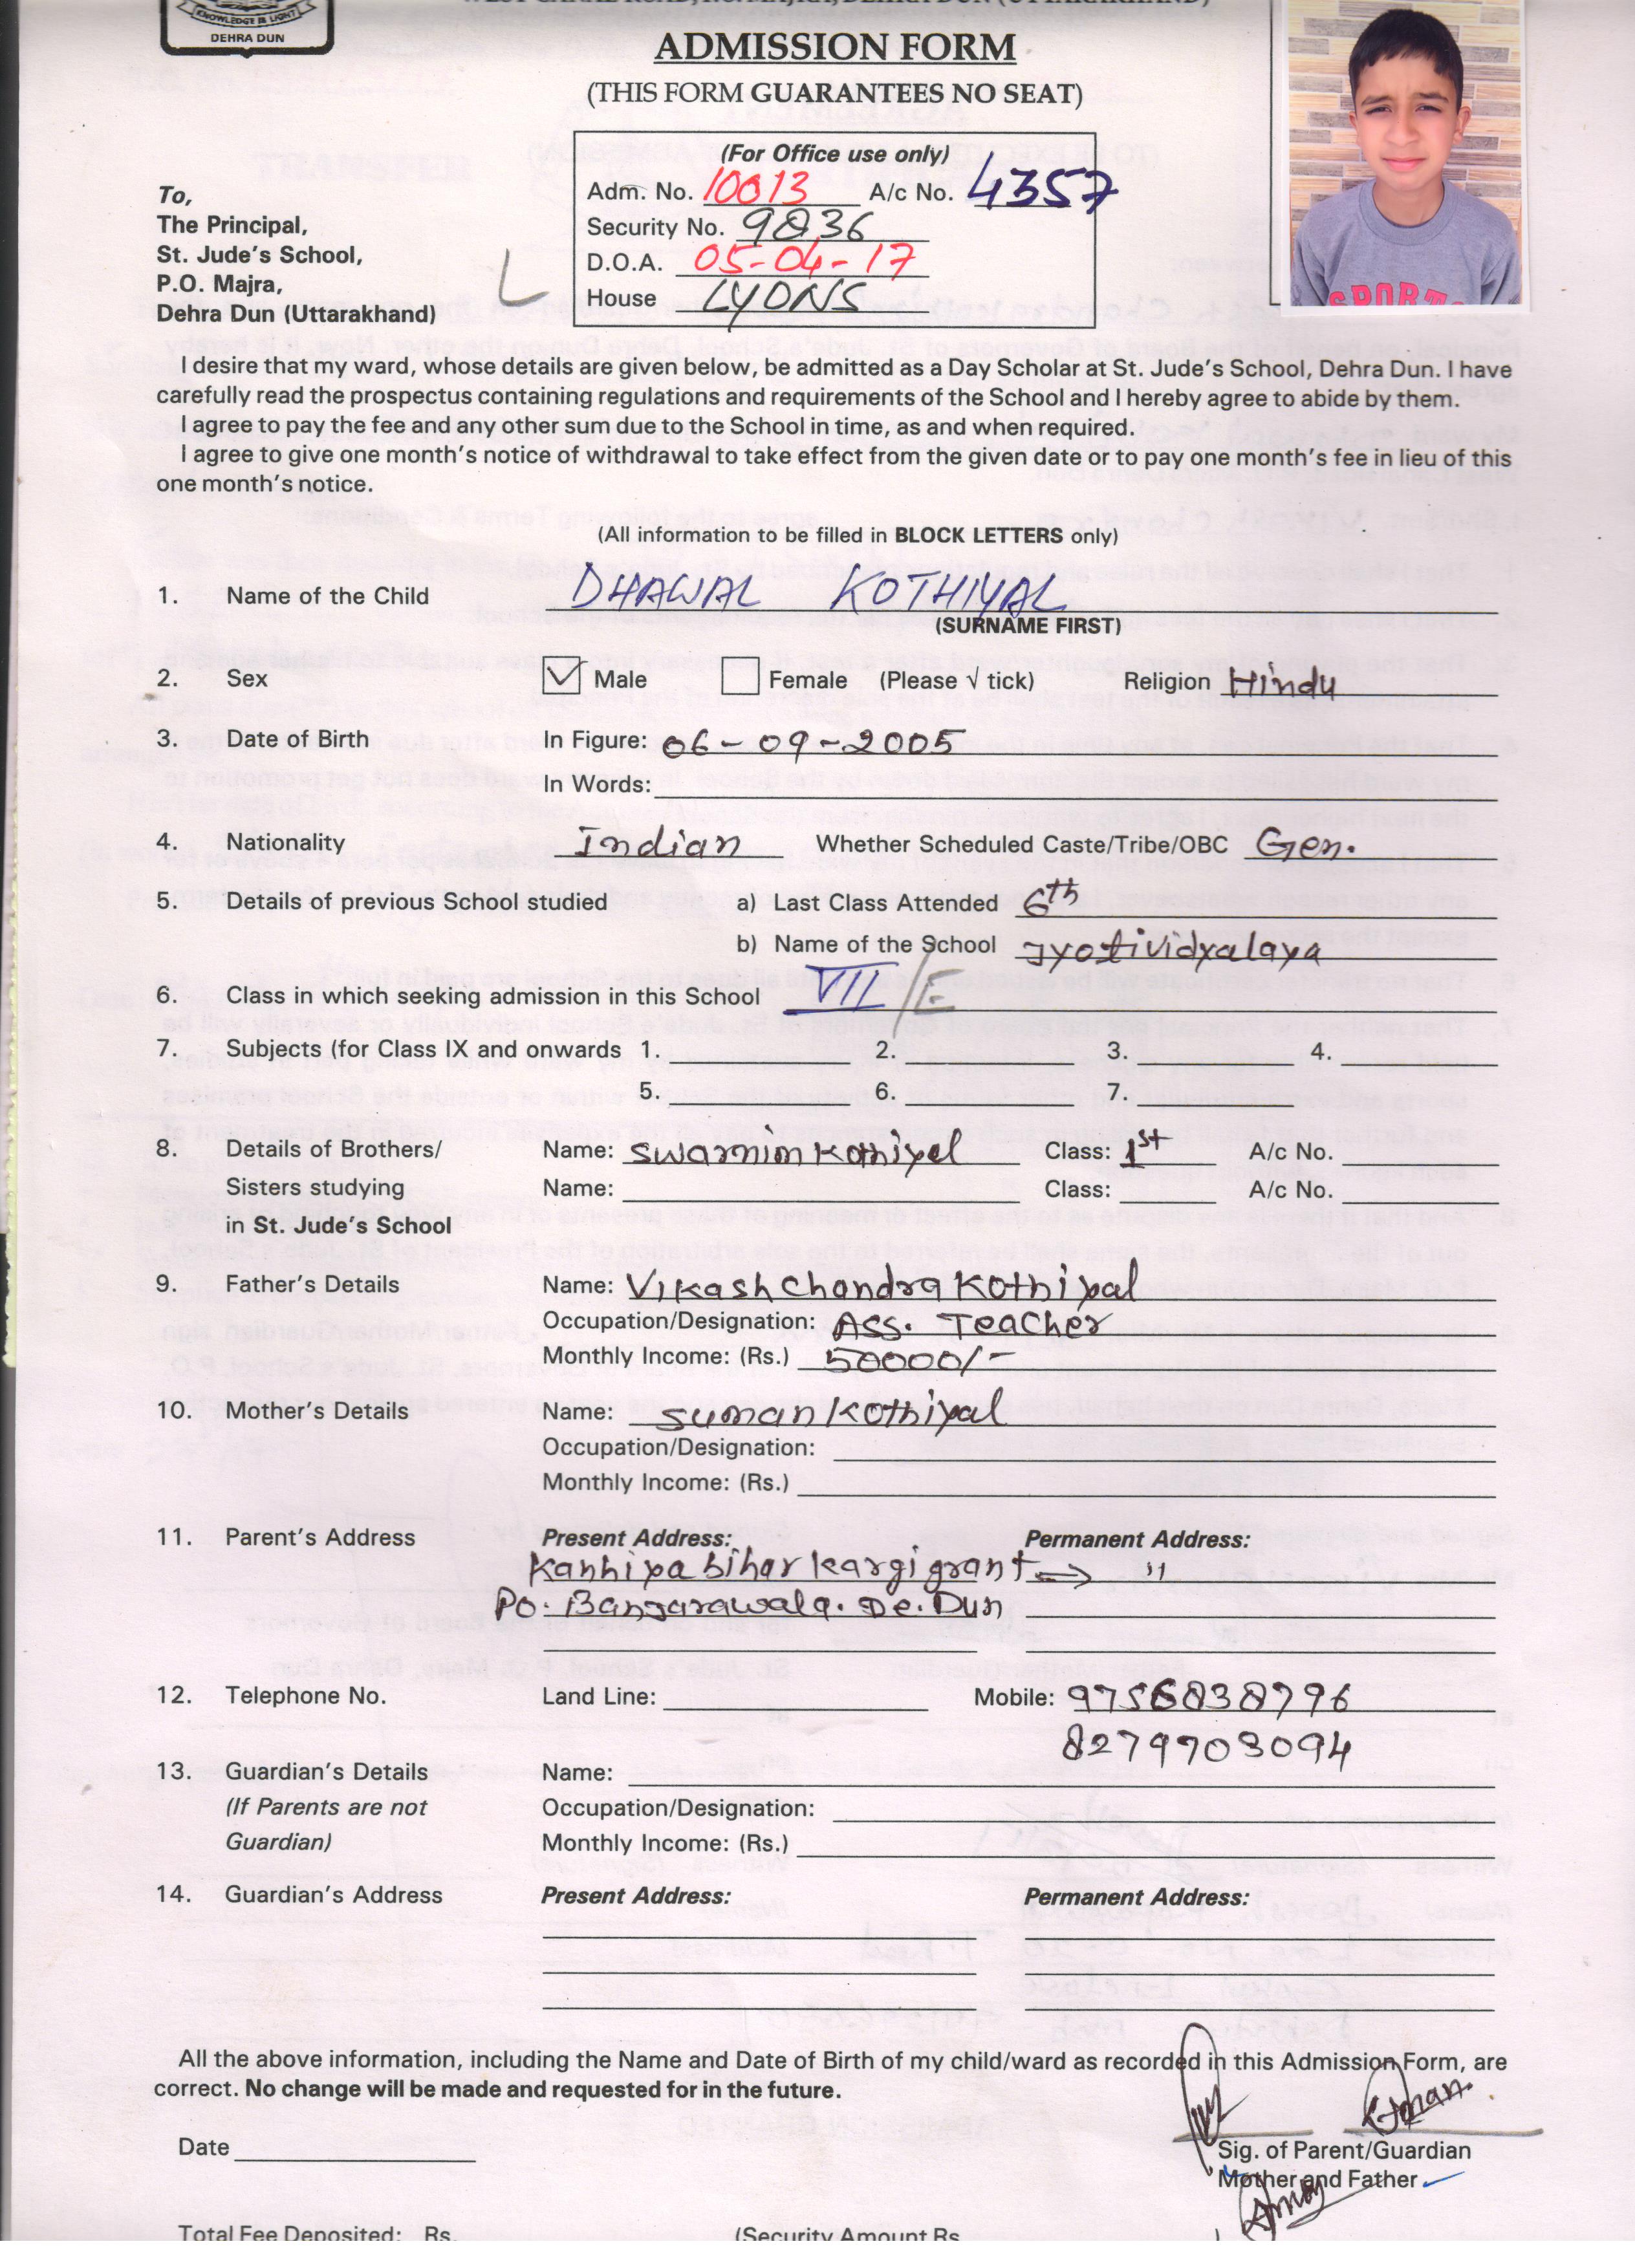 KNOWLEDGE IS LIGHT
DEHRA DUN
ADMISSION FORM
(THIS FORM GUARANTEES NO SEAT)
(For Office use only)
Adm. No. 10013 A/c No. 4357
Security No. 9836
D.O.A. 05-04-17
House LYONS
To,
The Principal,
St. Jude's School,
P.O. Majra,
Dehra Dun (Uttarakhand)
L
SPORT
I desire that my ward, whose details are given below, be admitted as a Day Scholar at St. Jude's School, Dehra Dun. I have
carefully read the prospectus containing regulations and requirements of the School and I hereby agree to abide by them.
I agree to pay the fee and any other sum due to the School in time, as and when required.
I agree to give one month's notice of withdrawal to take effect from the given date or to pay one month's fee in lieu of this
one month's notice.
(All information to be filled in BLOCK LETTERS only)
1. Name of the Child DHAWAL KOTHIYAL
(SURNAME FIRST)
2. Sex Male Female (Please √ tick) Religion Hindu
3. Date of Birth In Figure: 06-09-2005
In Words:
4. Nationality Indian Whether Scheduled Caste/Tribe/OBC Gen.
5. Details of previous School studied a) Last Class Attended 6th
b) Name of the School Jyotividyalaya
6. Class in which seeking admission in this School VII/E
7. Subjects (for Class IX and onwards 1. 2. 3. 4.
5. 6. 7.
8. Details of Brothers/ Name: Swarnim Kothiyal Class: 1st A/c No.
Sisters studying Name: Class: A/c No.
in St. Jude's School
9. Father's Details Name: Vikash Chandra Kothiyal
Occupation/Designation: Ass. Teacher
Monthly Income: (Rs.) 50000/-
10. Mother's Details Name: Suman Kothiyal
Occupation/Designation:
Monthly Income: (Rs.)
11. Parent's Address Present Address: Permanent Address:
Kanhiya bihar kargi grant ⇒ "
Po. Banjarawala. De. Dun
12. Telephone No. Land Line: Mobile: 9756838796
8279703094
13. Guardian's Details Name:
(If Parents are not Occupation/Designation:
Guardian) Monthly Income: (Rs.)
14. Guardian's Address Present Address: Permanent Address:
All the above information, including the Name and Date of Birth of my child/ward as recorded in this Admission Form, are
correct. No change will be made and requested for in the future.
Date
Sig. of Parent/Guardian
Mother and Father
Total Fee Deposited: Rs. (Security Amount Rs.